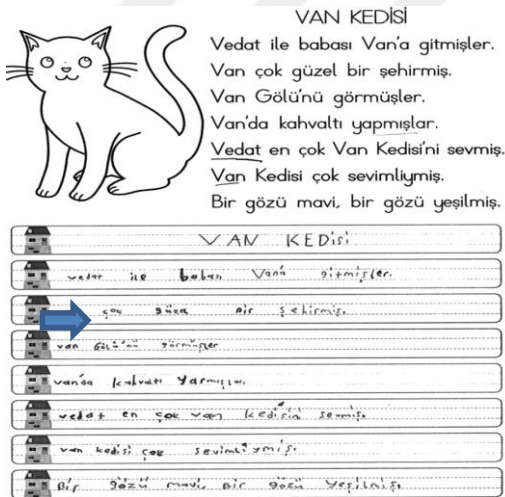 VAN KEDİSİ
Vedat ile babası Van'a gitmişler.
Van çok güzel bir şehirmiş.
Van Gölü'nü görmüşler.
Van'da kahvaltı yapmışlar.
Vedat en çok Van Kedisi'ni sevmiş.
Van Kedisi çok sevimliymiş.
Bir gözü mavi, bir gözü yeşilmiş.
VAN KEDisi
vedat ile babası Vana gitmişler.
çok güzel Bir şehirmiş.
van Gölü'nü görmüşler
vanda kahvaltı yapmışlar.
vedat en çok van kedisini sevmiş.
van kedisi çok sevimliymiş.
Bir gözü mavi, Bir gözü yeşilmiş.